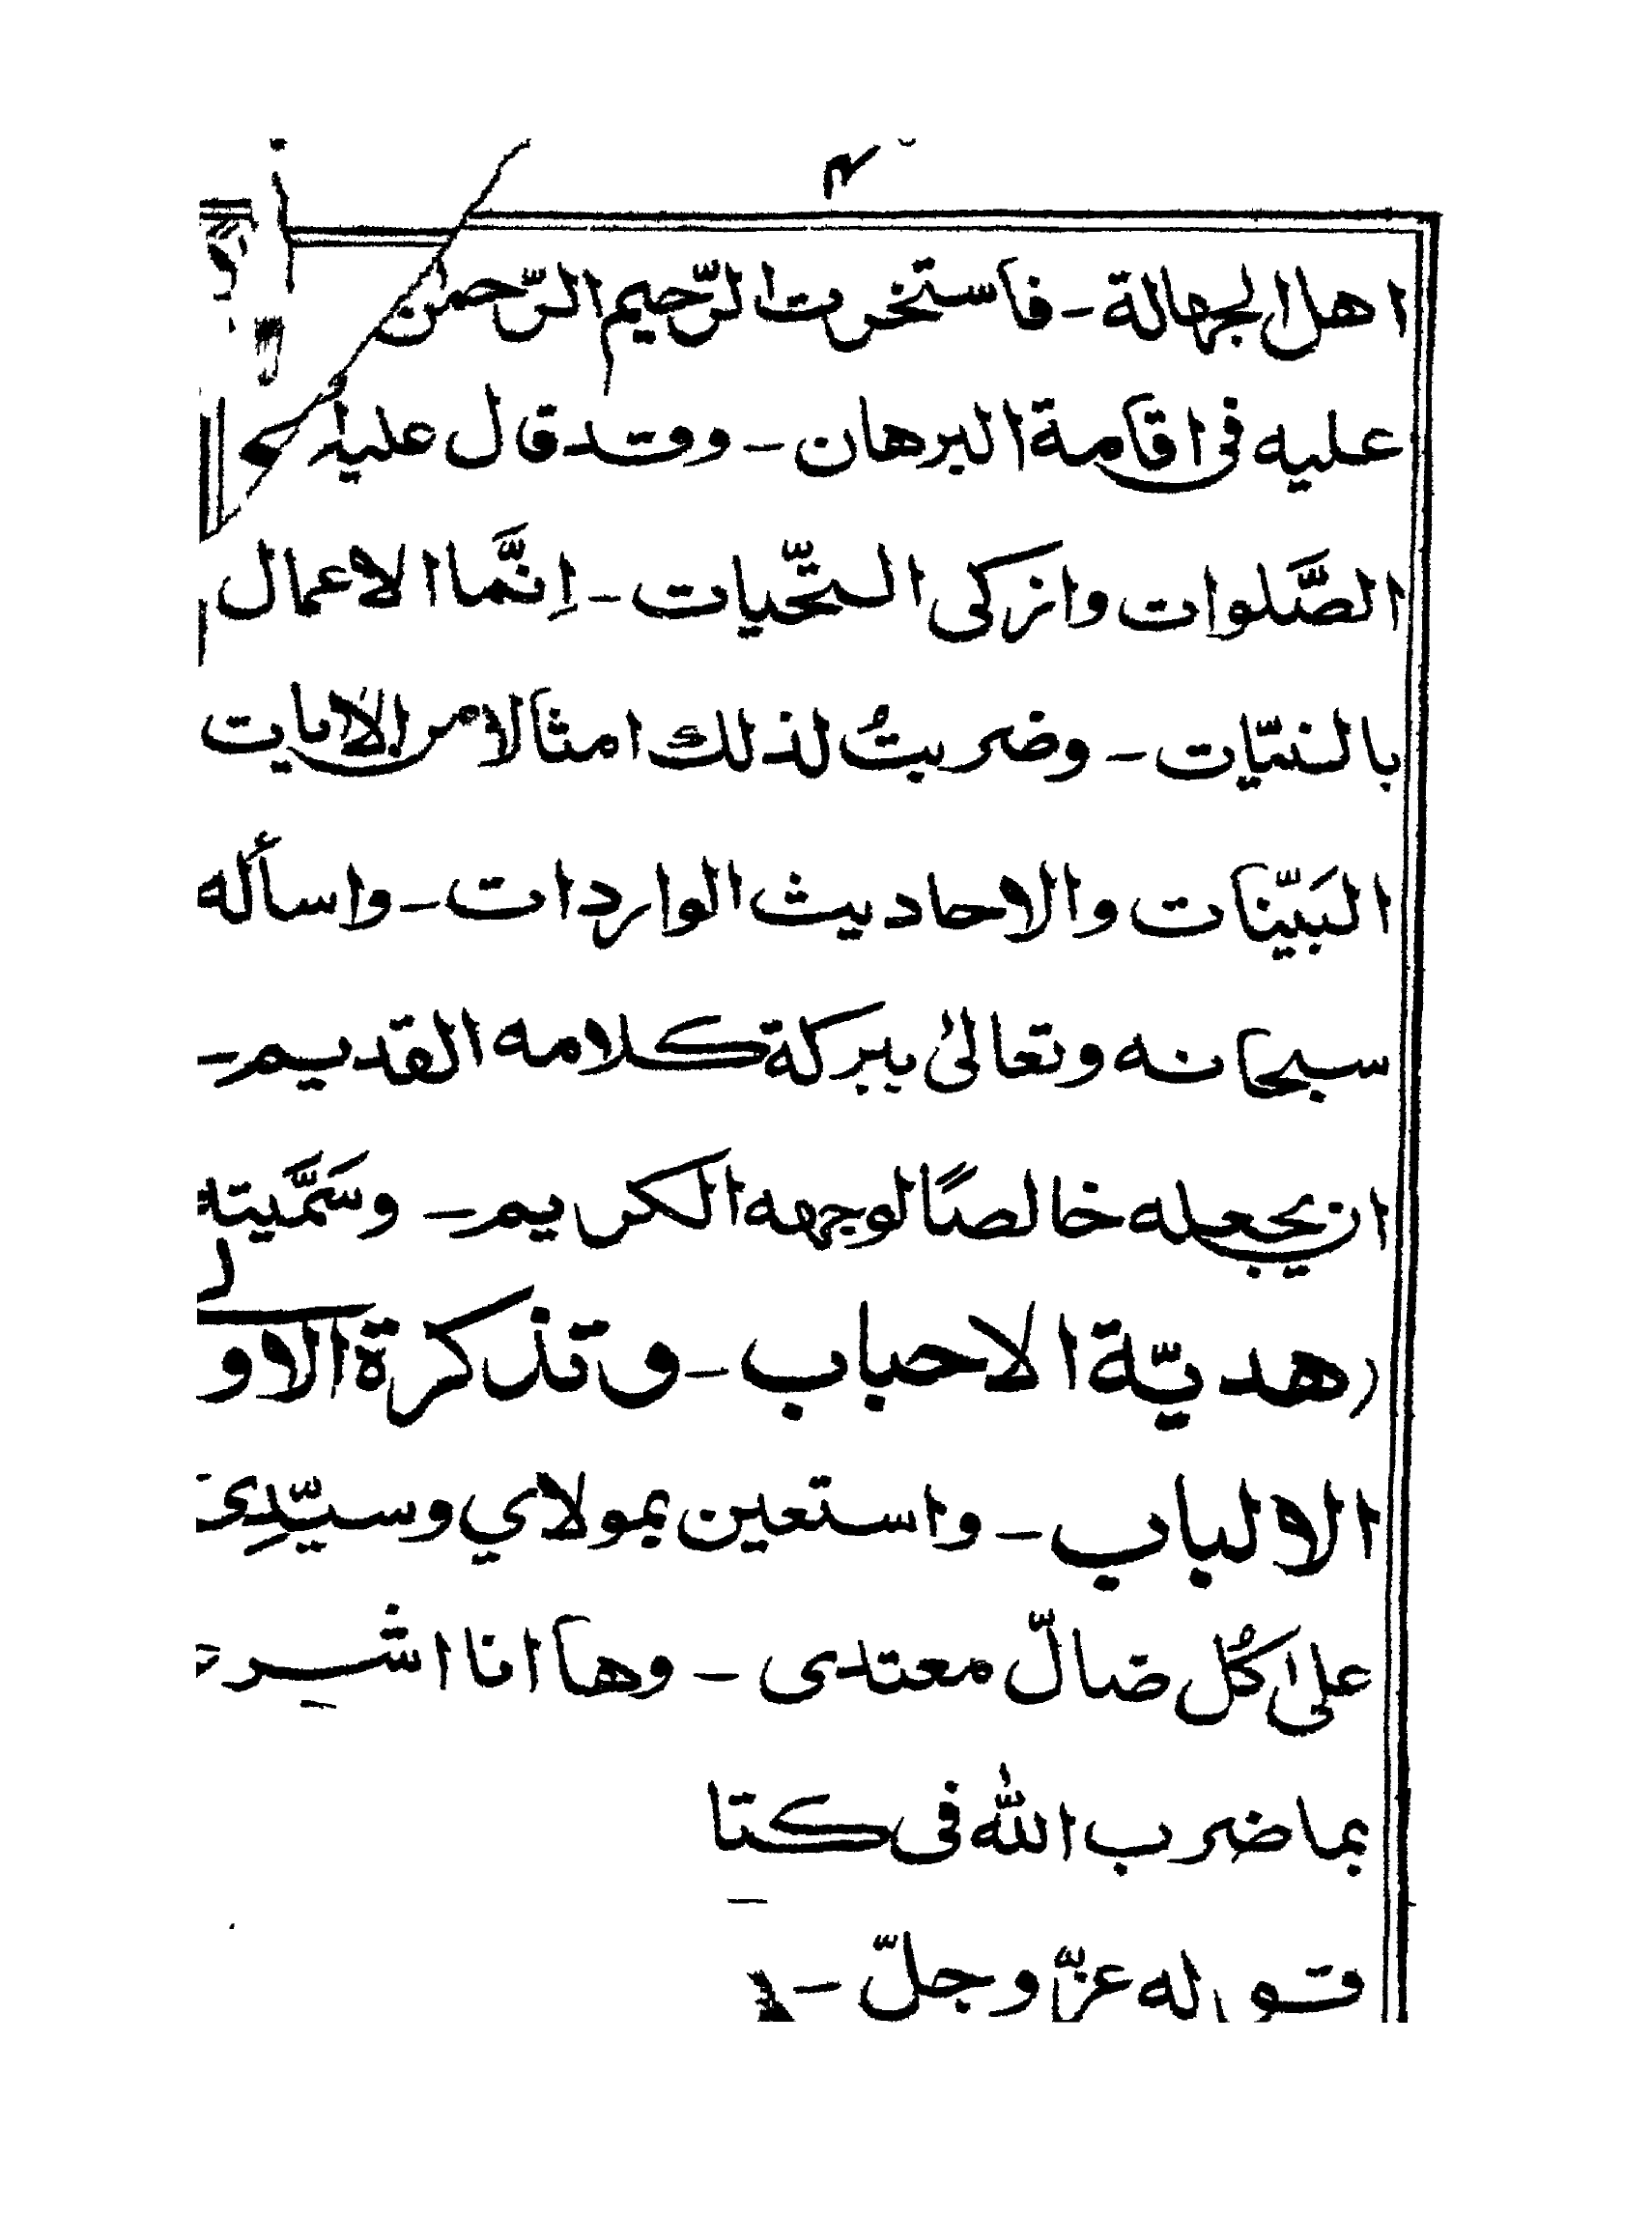 ۴
اهل الجهالة ـ فاستخرت الرّحيم الرّحمن
عليه فى اقامة البرهان ـ وقد قال عليه
الصَّلوات وازكى التحّيات ـ اِنَّما الاعمال
بالنيّات ـ وضربتُ لذلك امثالا من الايات
البَيّنات والاحاديث الواردات ـ واسأله
سبحانه وتعالىٰ ببركة كلامه القديم ـ
ان يجعله خالصًا لوجهه الكريم ـ وسَمَّيته
هديّة الاحباب ـ وتذكرة الاو
الالباب ـ واستعين بمولاي وسيّدِى
على كُل ضالّ معتدى ـ وها انا اشرع
بما ضرب الله فى كتا
قوله عزّ وجلّ ـ